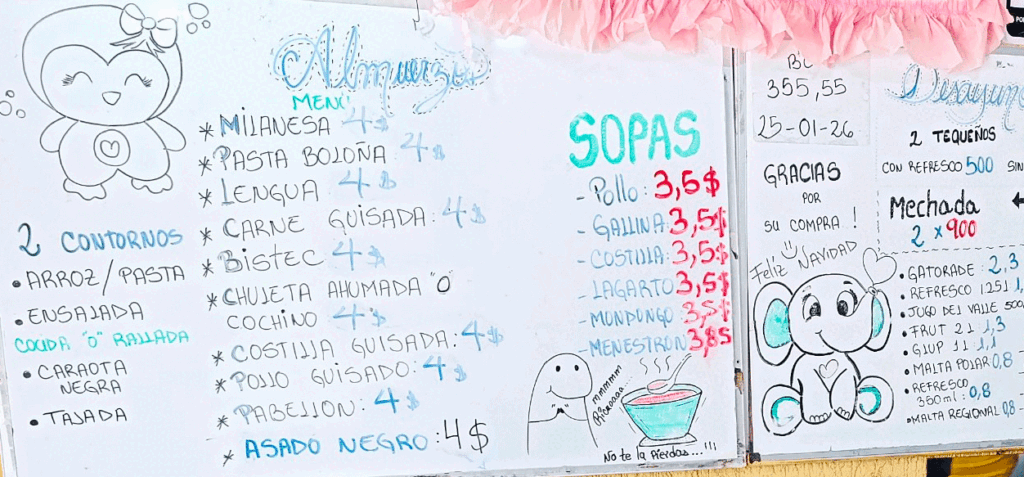 Almuerzos
MENÚ
* MILANESA 4$
* PASTA BOLOÑA 4$
* LENGUA 4$
* CARNE GUISADA: 4$
* BISTEC 4$
* CHULETA AHUMADA "O"
COCHINO 4$
* COSTILLA GUISADA: 4$
* POLLO GUISADO: 4$
* PABELLON: 4$
* ASADO NEGRO: 4$
2 CONTORNOS
• ARROZ/PASTA
• ENSALADA
COCIDA "Ó" RALLADA
• CARAOTA
NEGRA
• TAJADA
SOPAS
- Pollo: 3,5$
- GALLINA: 3,5$
- COSTILLA: 3,5$
- LAGARTO 3,5$
- MONDONGO 3,5$
- MENESTRON 3,8$
mmmmm
Ricoooo...
No te la Pierdas...!!!
355,55
25-01-26
GRACIAS
POR
SU COMPRA !
Feliz NAVIDAD
Desayun
2 TEQUEÑOS
CON REFRESCO 500 SIN
Mechada
2 x 900
• GATORADE: 2,3
• REFRESCO 1.25l 1,
• JUGO DEL VALLE 500
• FRUT 2L 1,3
• GLUP 1L 1,1
• MALTA POLAR 0,8 -
• REFRESCO
350ml: 0,8
• MALTA REGIONAL 0,8 -